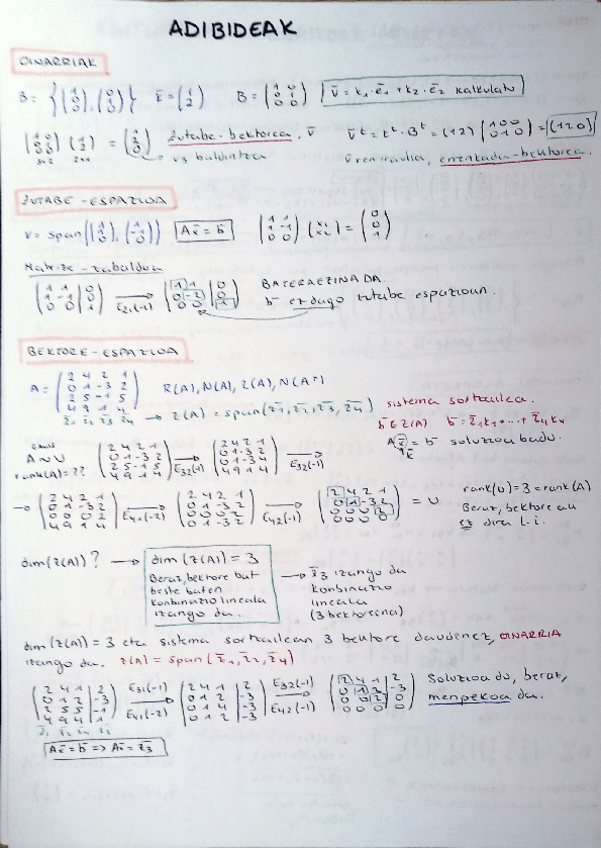 ADIBIDEAK
OINARRIAK
B = {(1 0 0), (0 1 0)} k̄ = (1 2) B = (1 0 0 1 0 0) v̄ = k₁·ē₁ + k₂·ē₂ kalkulatu
(1 0 0 1 0 0) (1 2) = (1 2 0) zutabe-bektorea, v̄ v̄ᵗ = k̄ᵗ·Bᵗ = (1 2) (1 0 0 0 1 0) = (1 2 0)
3x2 2x1
v₃ baldintza v̄ren iraulia, errenkada-bektorea.
ZUTABE-ESPAZIOA
V = span((1 1 0), (1 -1 0)) Ax̄ = b̄ (1 1 1 -1 0 0) (x₁ x₂) = (0 0 1)
Matrize zabaldua
(1 1 | 0 1 -1 | 0 0 0 | 1) E₂₁(-1) (1 1 | 0 0 -2 | 0 0 0 | 1) BATERAEZINA DA.
b̄ ez dago zutabe espazioan.
BEKTORE-ESPAZIOA
A = (2 4 2 1 0 1 -3 2 2 5 -1 5 4 9 1 4) R(A), N(A), Z(A), N(Aᵗ)
z̄₁ z̄₂ z̄₃ z̄₄ → Z(A) = span(z̄₁, z̄₂, z̄₃, z̄₄) sistema sortzailea.
b̄ ∈ Z(A) b̄ = z̄₁k₁ + ... + z̄₄k₄
Ax̄ = b̄ soluzioa badu.
k̄
Gauss
A ~ U (2 4 2 1 0 1 -3 2 2 5 -1 5 4 9 1 4) (2 4 2 1 0 1 -3 2 0 1 -3 4 4 9 1 4) E₃₂(-1)
rank(A) = ??
→ (2 4 2 1 0 1 -3 2 0 0 0 2 4 9 1 4) E₄₁(-2) (2 4 2 1 0 1 -3 2 0 0 0 2 0 1 -3 2) E₄₂(-1) (2 4 2 1 0 1 -3 2 0 0 0 2 0 0 0 0) = U rank(U) = 3 = rank(A)
Beraz, bektore
ez dira l.i.
dim(Z(A))? → dim(Z(A)) = 3
Beraz, bektore bat
beste baten
konbinazio lineala
izango da.
→ z̄₃ izango da
konbinazio
lineala
(3 bektoreena)
dim(Z(A)) = 3 eta sistema sortzailean 3 bektore daudenez, OINARRIA
izango da. Z(A) = span(z̄₁, z̄₂, z̄₄)
(2 4 1 | 2 0 1 2 | -3 2 5 5 | -1 4 9 4 | 1) E₃₁(-1) E₄₁(-2) (2 4 1 | 2 0 1 2 | -3 0 1 4 | -3 0 1 2 | -3) E₃₂(-1) E₄₂(-1) (2 4 1 | 2 0 1 2 | -3 0 0 2 | 0 0 0 0 | 0) Soluzioa du, beraz,
menpekoa da.
z̄₁ z̄₂ z̄₄ z̄₃
Ax̄ = b̄ => Ax̄ = z̄₃